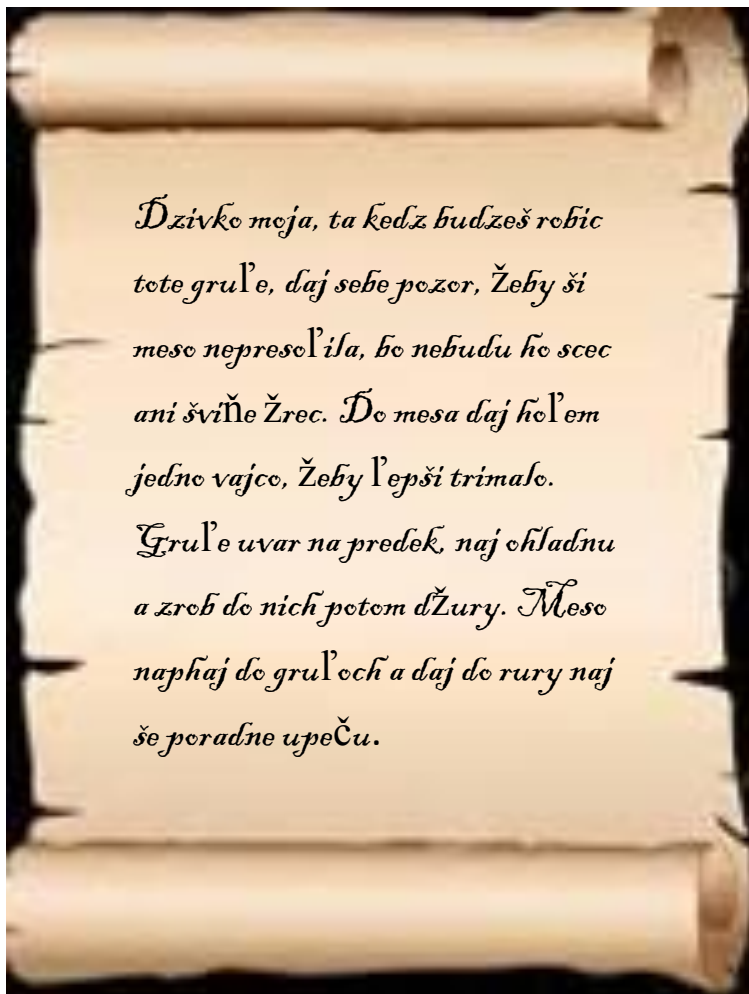 Dzivko moja, ta kedz budzeš robic
tote gruľe, daj sebe pozor, žeby ši
meso nepresoľila, bo nebudu ho scec
ani šviňe žrec. Do mesa daj hoľem
jedno vajco, žeby ľepši trimalo.
Gruľe uvar na predek, naj ohladnu
a zrob do nich potom džury. Meso
naphaj do gruľoch a daj do rury naj
še poradne upeču.